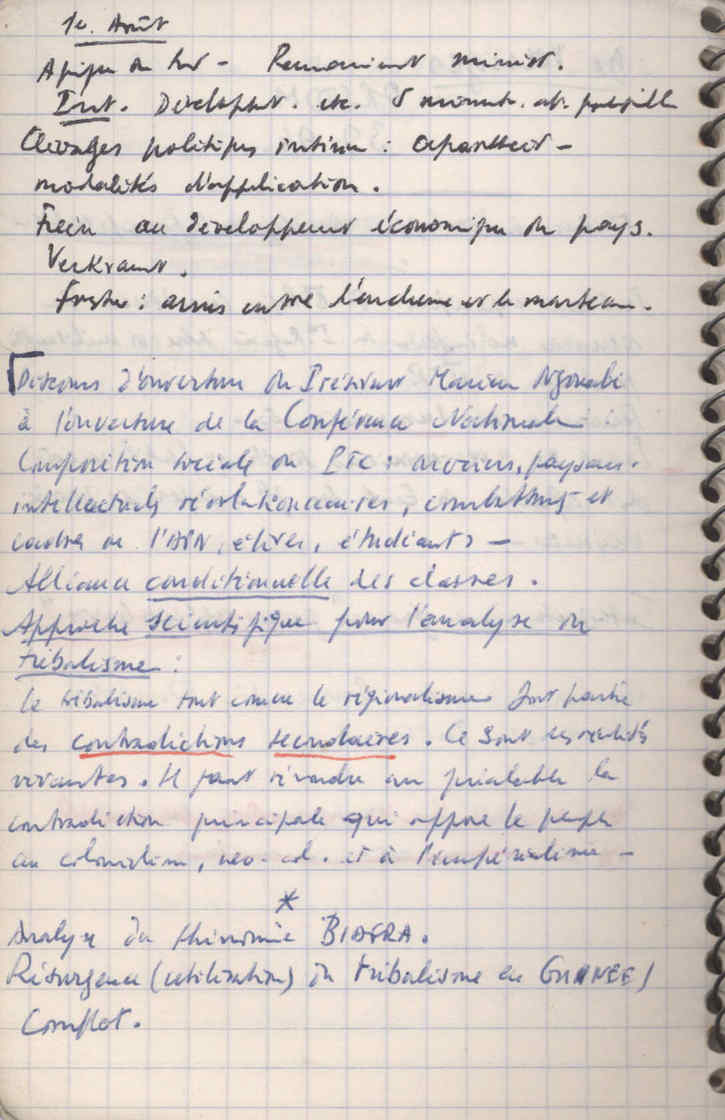 1er. Août
Afrique du Sud - Remaniement minist.
Int. Developpt. etc. 5 minist.
Clivages politiques intérieurs : apartheid -
modalités d'application.
Frein au développement économique du pays.
Verkrampt.
Vorster : assis entre l'enclume et le marteau.
Discours d'ouverture du Président Marien Ngouabi
à l'ouverture de la Conférence Nationale :
Composition sociale du PTC : ouvriers, paysans.
intellectuels révolutionnaires, combattants et
cadres de l'APN, élèves, étudiants -
Alliance conditionnelle des classes.
Approche scientifique pour l'analyse du
tribalisme :
le tribalisme tout comme le régionalisme font partie
des contradictions secondaires. Ce sont des réalités
vivantes. Il faut résoudre au préalable la
contradiction principale qui oppose le peuple
au colonialisme, néo-col. et à l'impérialisme -
*
Analyse du phénomène BIAFRA.
Résurgence (utilisation) du tribalisme en GUINEE /
Complot.